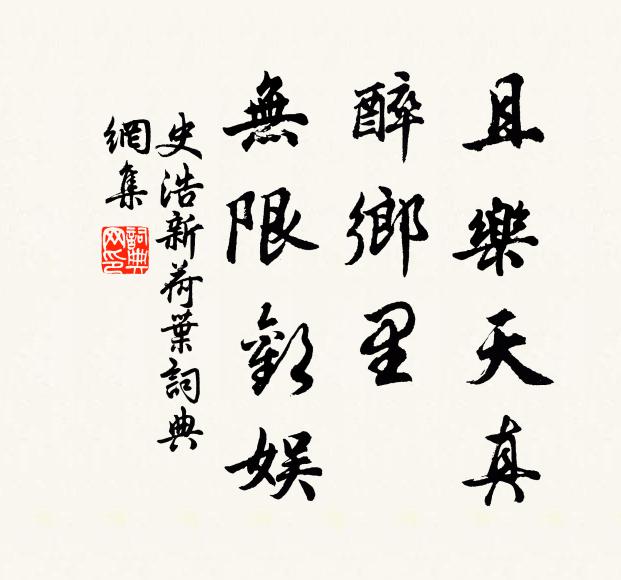 且樂天真
醉鄉里
無限歡娛
史浩新荷葉詞典
網集
詞典
网印